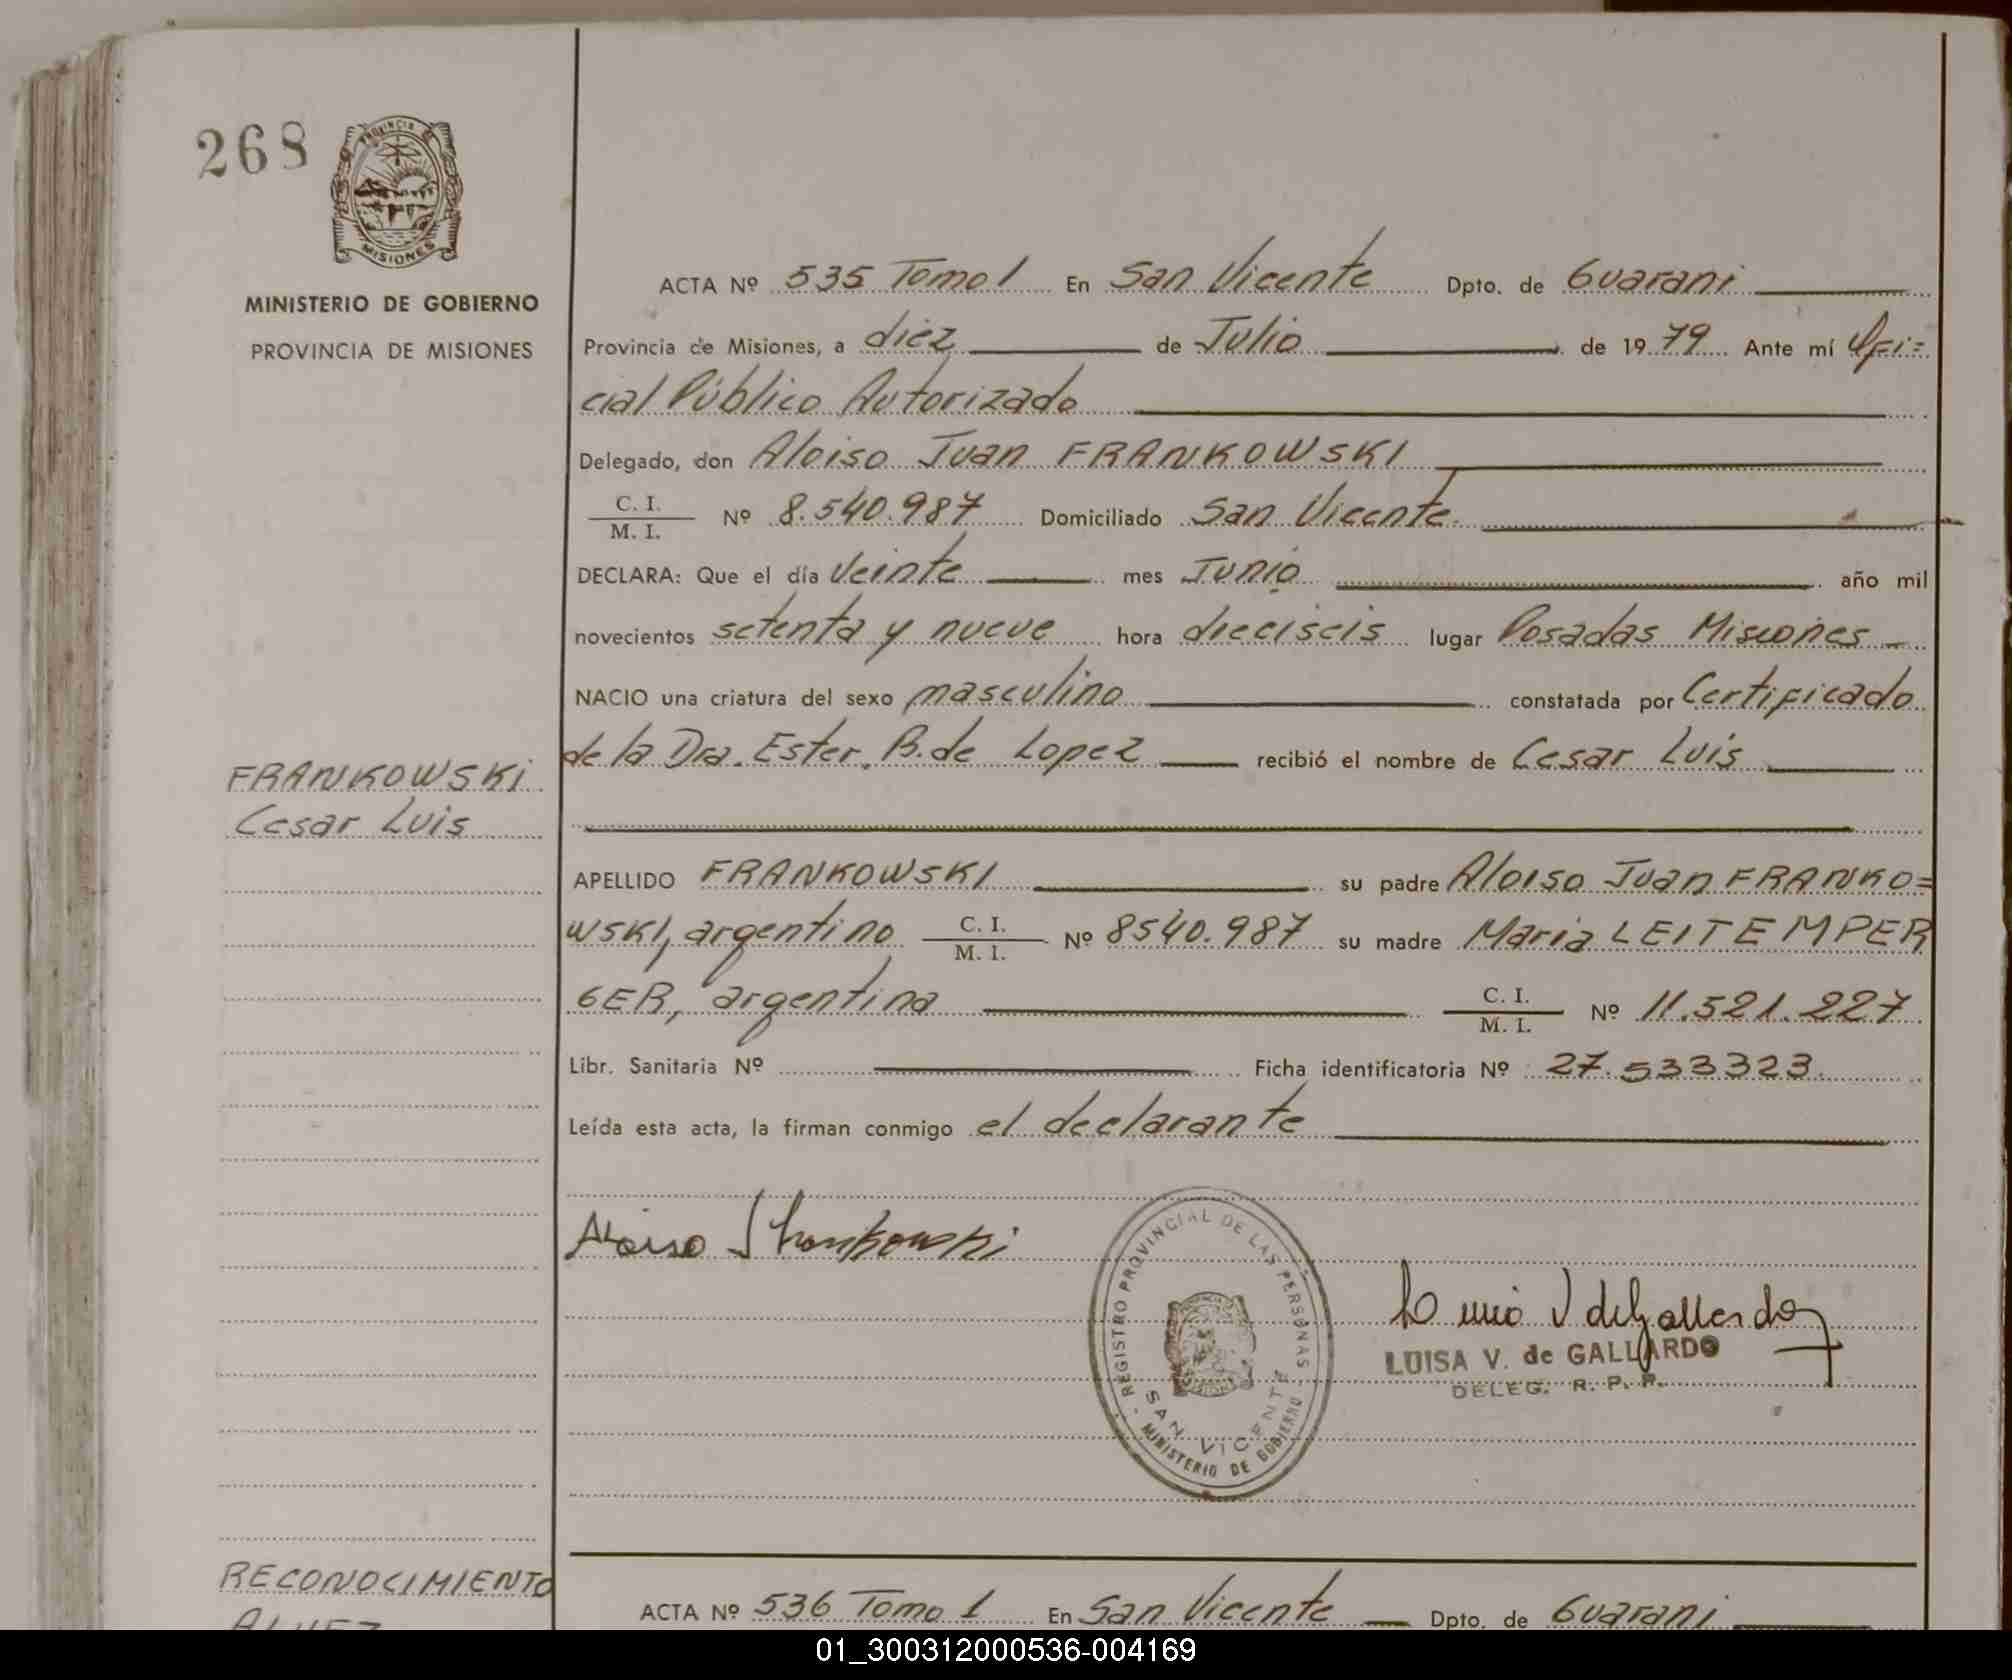 268
PROVINCIA DE
MISIONES
MINISTERIO DE GOBIERNO
PROVINCIA DE MISIONES
ACTA Nº 535 Tomo 1 En San Vicente Dpto. de Guarani
Provincia de Misiones, a diez de Julio de 1979 Ante mí Ofi=
cial Público Autorizado
Delegado, don Aloiso Juan FRANKOWSKI
C. I.
M. I. Nº 8.540.987 Domiciliado San Vicente.
DECLARA: Que el día Veinte mes Junio año mil
novecientos setenta y nueve hora dieciseis lugar Posadas Misiones
NACIO una criatura del sexo masculino constatada por Certificado
de la Dra. Ester. B. de Lopez recibió el nombre de Cesar Luis
FRANKOWSKI
Cesar Luis
APELLIDO FRANKOWSKI su padre Aloiso Juan FRANKO=
WSKI, argentino C. I. M. I. Nº 8540.987 su madre Maria LEITEMPER
GER, argentina C. I. M. I. Nº 11.521.227
Libr. Sanitaria Nº Ficha identificatoria Nº 27.533323.
Leída esta acta, la firman conmigo el declarante
Aloiso J Frankowski
REGISTRO PROVINCIAL DE LAS PERSONAS
SAN VICENTE
MINISTERIO DE GOBIERNO
Luisa V de Gallardo
LUISA V. de GALLARDO
DELEG. R. P. P.
RECONOCIMIENTO
ALVEZ
ACTA Nº 536 Tomo 1 En San Vicente Dpto. de Guarani
01_300312000536-004169